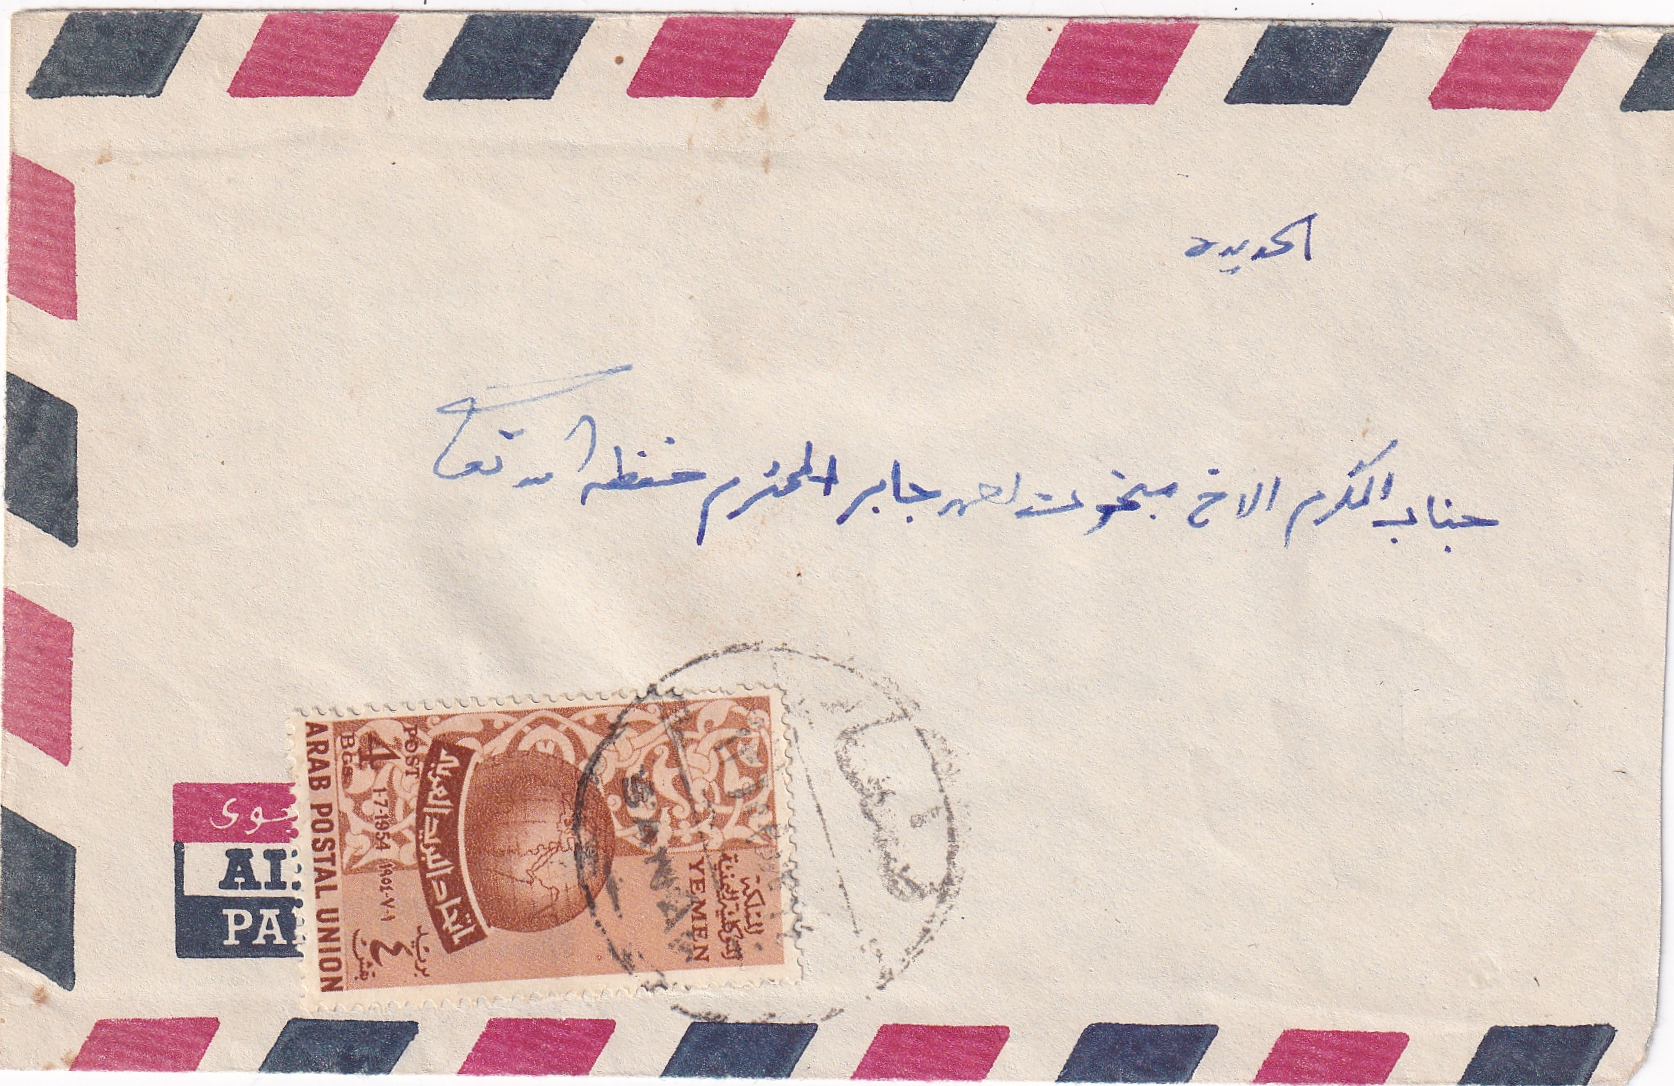 الحديده
جناب المكرم الاخ مبخوت جابر المحترم حفظه الله تعالى
جوي
AI
PA
ARAB POSTAL UNION
POST
4
Bgs.
1-7-1954 ١٩٥٤-٧-١
بريد
٤
بقش
اتحاد البريد العربي
المملكة المتوكلية اليمنية
YEMEN
SANAA
صنعاء